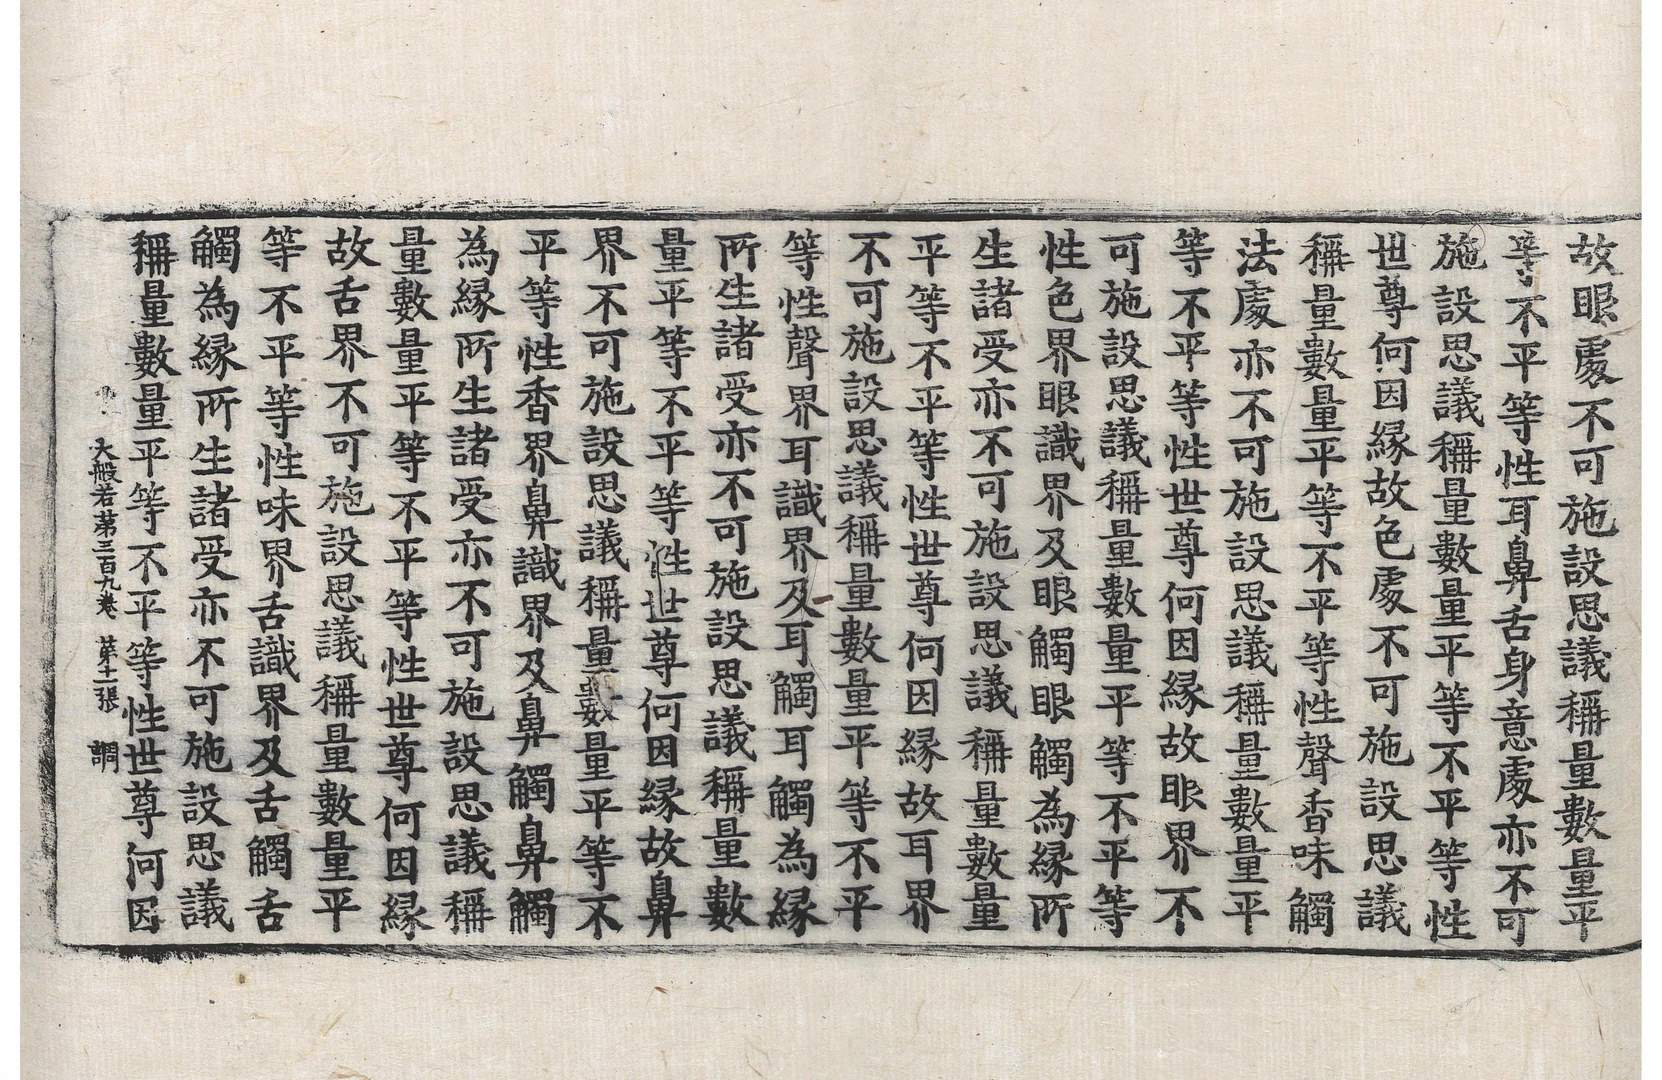 故眼處不可施設思議稱量數量平
等不平等性耳鼻舌身意處亦不可
施設思議稱量數量平等不平等性
世尊何因緣故色處不可施設思議
稱量數量平等不平等性聲香味觸
法處亦不可施設思議稱量數量平
等不平等性世尊何因緣故眼界不
可施設思議稱量數量平等不平等
性色界眼識界及眼觸眼觸為緣所
生諸受亦不可施設思議稱量數量
平等不平等性世尊何因緣故耳界
不可施設思議稱量數量平等不平
等性聲界耳識界及耳觸耳觸為緣
所生諸受亦不可施設思議稱量數
量平等不平等性世尊何因緣故鼻
界不可施設思議稱量數量平等不
平等性香界鼻識界及鼻觸鼻觸
為緣所生諸受亦不可施設思議稱
量數量平等不平等性世尊何因緣
故舌界不可施設思議稱量數量平
等不平等性味界舌識界及舌觸舌
觸為緣所生諸受亦不可施設思議
稱量數量平等不平等性世尊何因
大般若第三百九卷 第十二張 調